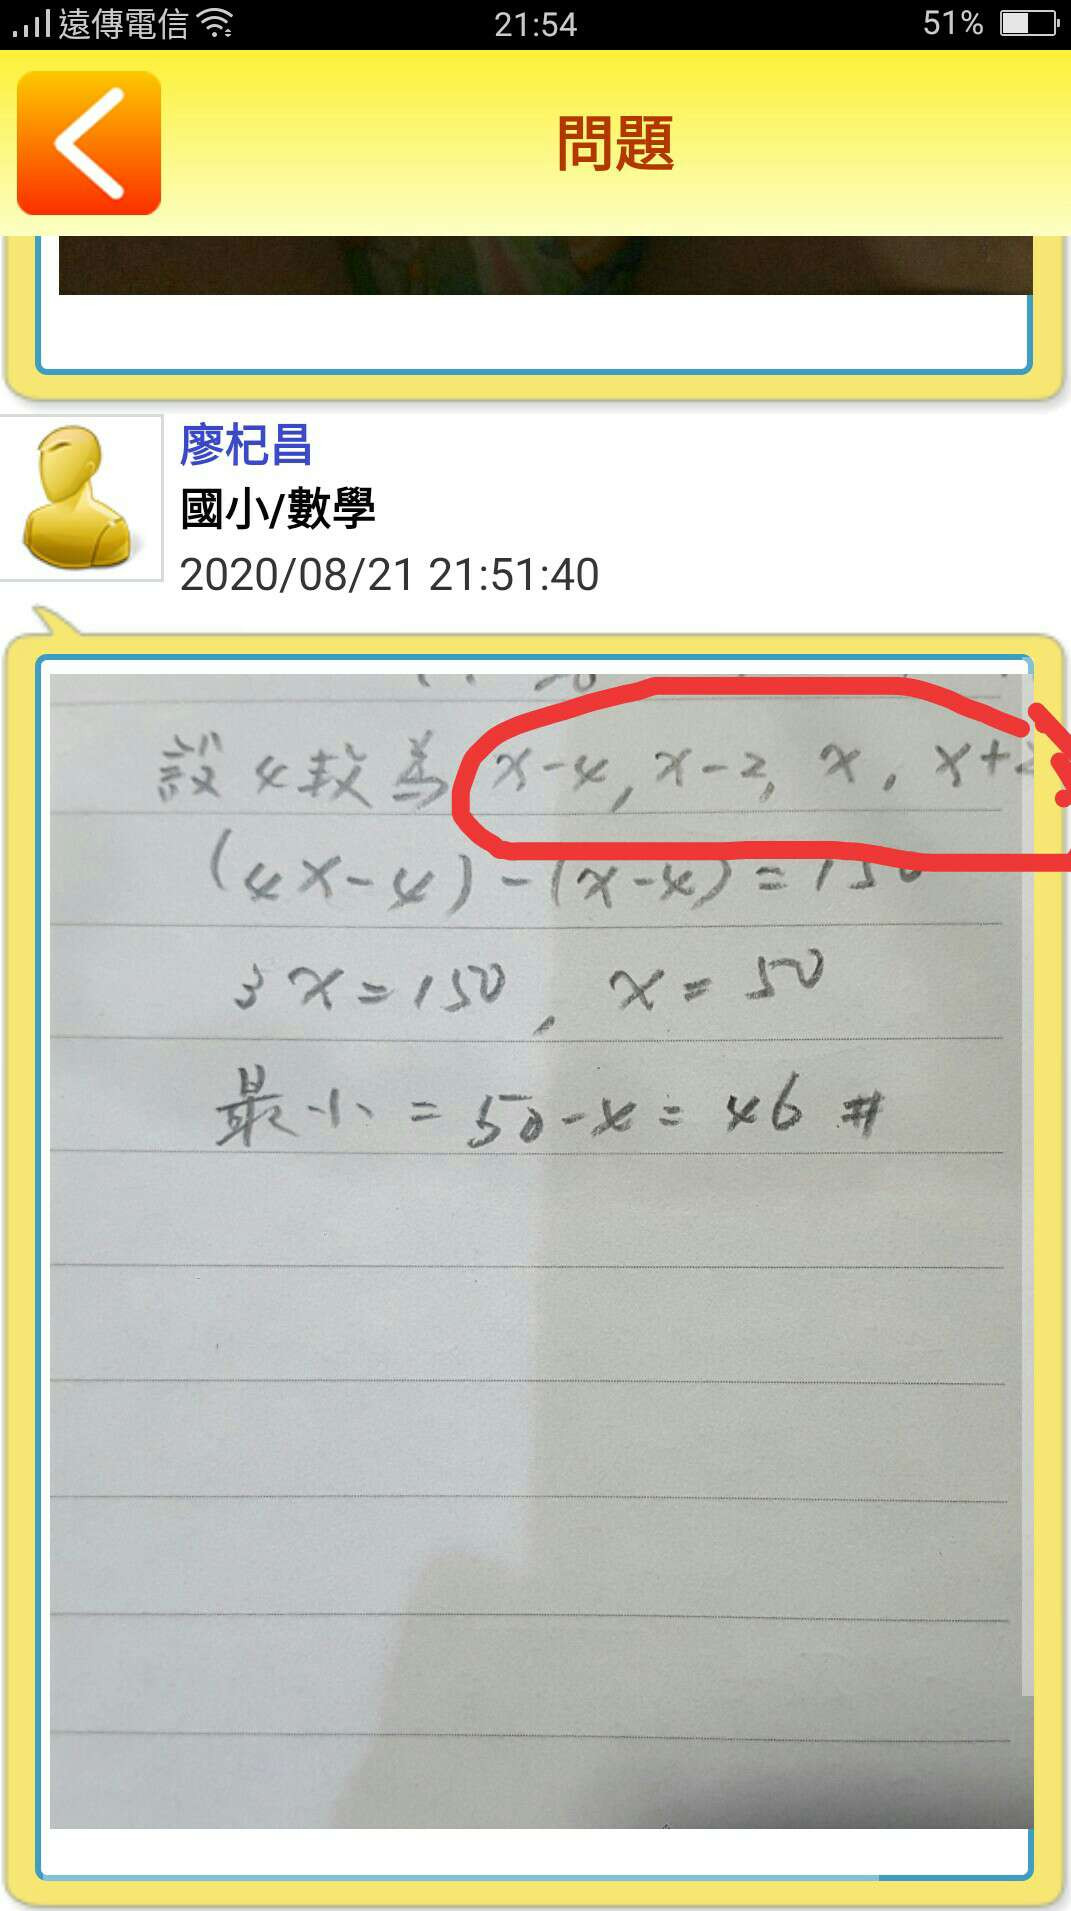 遠傳電信 21:54 51%
問題
廖杞昌
國小/數學
2020/08/21 21:51:40
設4数為 x-4, x-2, x, x+2
(4x-4)-(x-4)=150
3x=150, x=50
最小=50-4=46 #